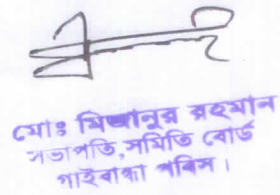 মোঃ মিজানুর রহমান
সভাপতি,সমিতি বোর্ড
গাইবান্ধা পবিস।